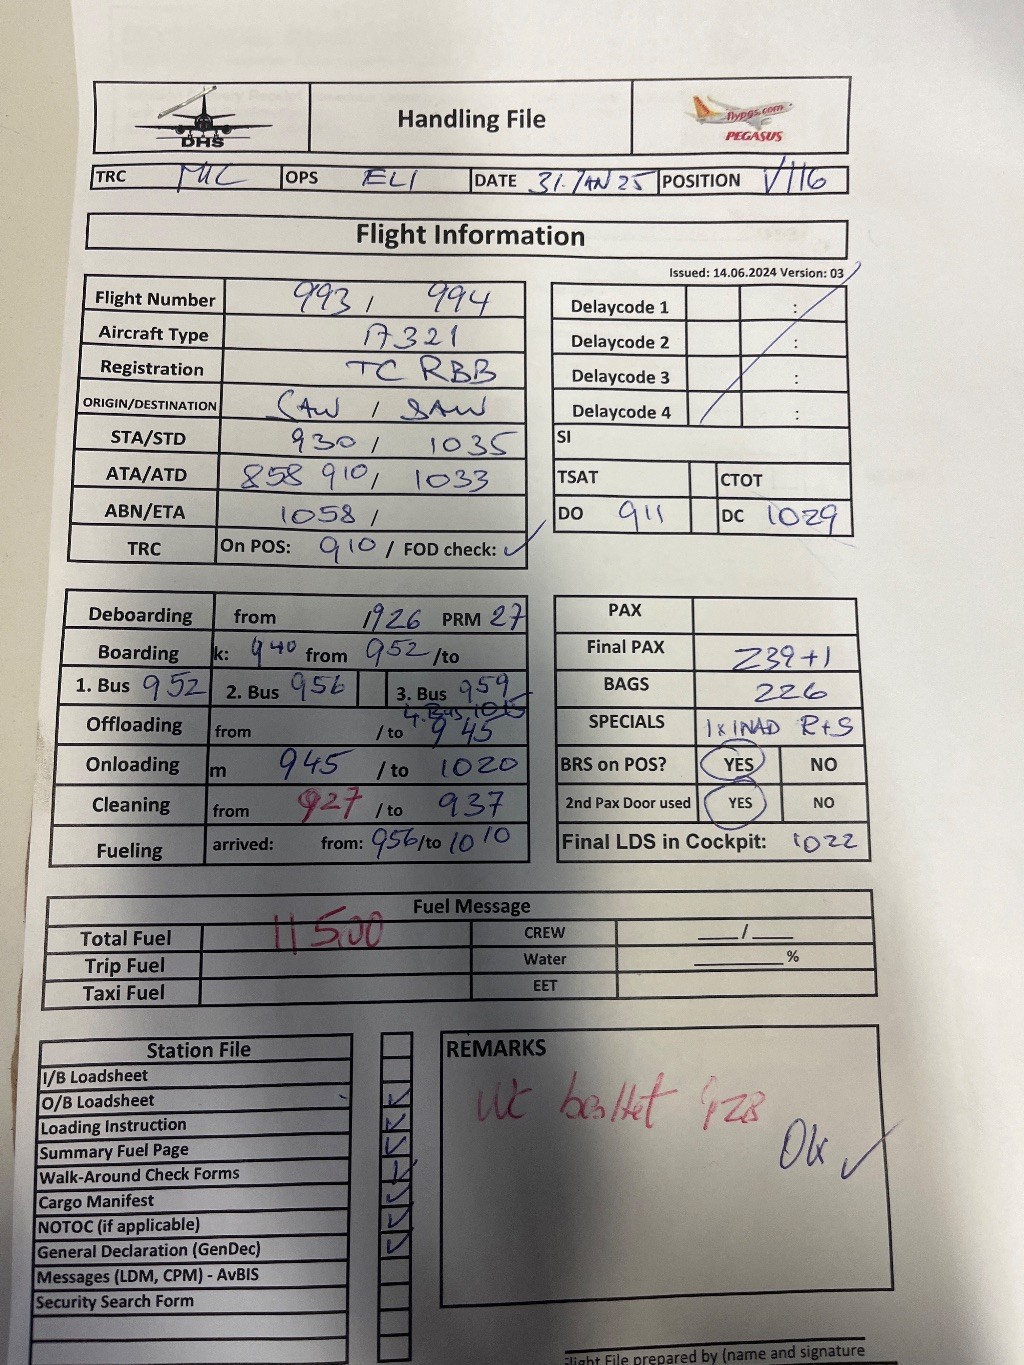 DHS
Handling File
flypgs.com
PEGASUS
TRC MIC OPS ELI DATE 31.JAN 25 POSITION V116
Flight Information
Issued: 14.06.2024 Version: 03
Flight Number 993 / 994
Aircraft Type A321
Registration TC RBB
ORIGIN/DESTINATION SAW / SAW
STA/STD 930 / 1035
ATA/ATD 858 910 / 1033
ABN/ETA 1058 /
TRC On POS: 910 / FOD check: ✓
Delaycode 1 :
Delaycode 2 :
Delaycode 3 :
Delaycode 4 :
SI
TSAT CTOT
DO 911 DC 1029
Deboarding from / 926 PRM 27
Boarding k: 940 from 952 /to
1. Bus 952 2. Bus 956 3. Bus 959
4. Bus 1015
Offloading from / to 945
Onloading m 945 / to 1020
Cleaning from 927 / to 937
Fueling arrived: from: 956 /to 1010
PAX
Final PAX 239+1
BAGS 226
SPECIALS 1x INAD R+S
BRS on POS? YES NO
2nd Pax Door used YES NO
Final LDS in Cockpit: 1022
Fuel Message
Total Fuel 11500 CREW ___/___
Trip Fuel Water ________%
Taxi Fuel EET
Station File
I/B Loadsheet
O/B Loadsheet ✓
Loading Instruction ✓
Summary Fuel Page ✓
Walk-Around Check Forms ✓
Cargo Manifest ✓
NOTOC (if applicable) ✓
General Declaration (GenDec) ✓
Messages (LDM, CPM) - AvBIS
Security Search Form
REMARKS
WC bestellt 928
Ok ✓
light File prepared by (name and signature